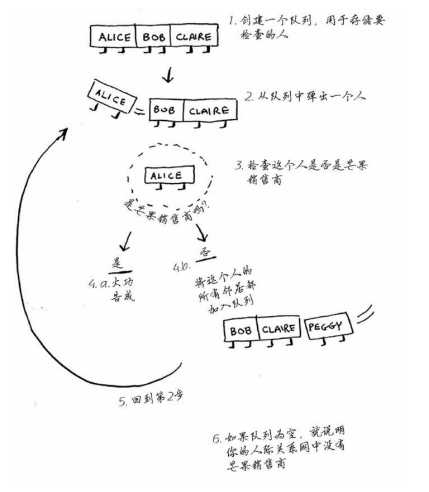 1. 创建一个队列，用于存储要
检查的人
ALICE BOB CLAIRE
ALICE
BOB CLAIRE
2. 从队列中弹出一个人
3. 检查这个人是否是芒果
销售商
ALICE
是芒果销售商吗？
是
4.a. 大功
告成
否
4.b.
将这个人的
所有邻居都
加入队列
BOB CLAIRE PEGGY
5. 回到第2步
6. 如果队列为空，就说明
你的人际关系网中没有
芒果销售商